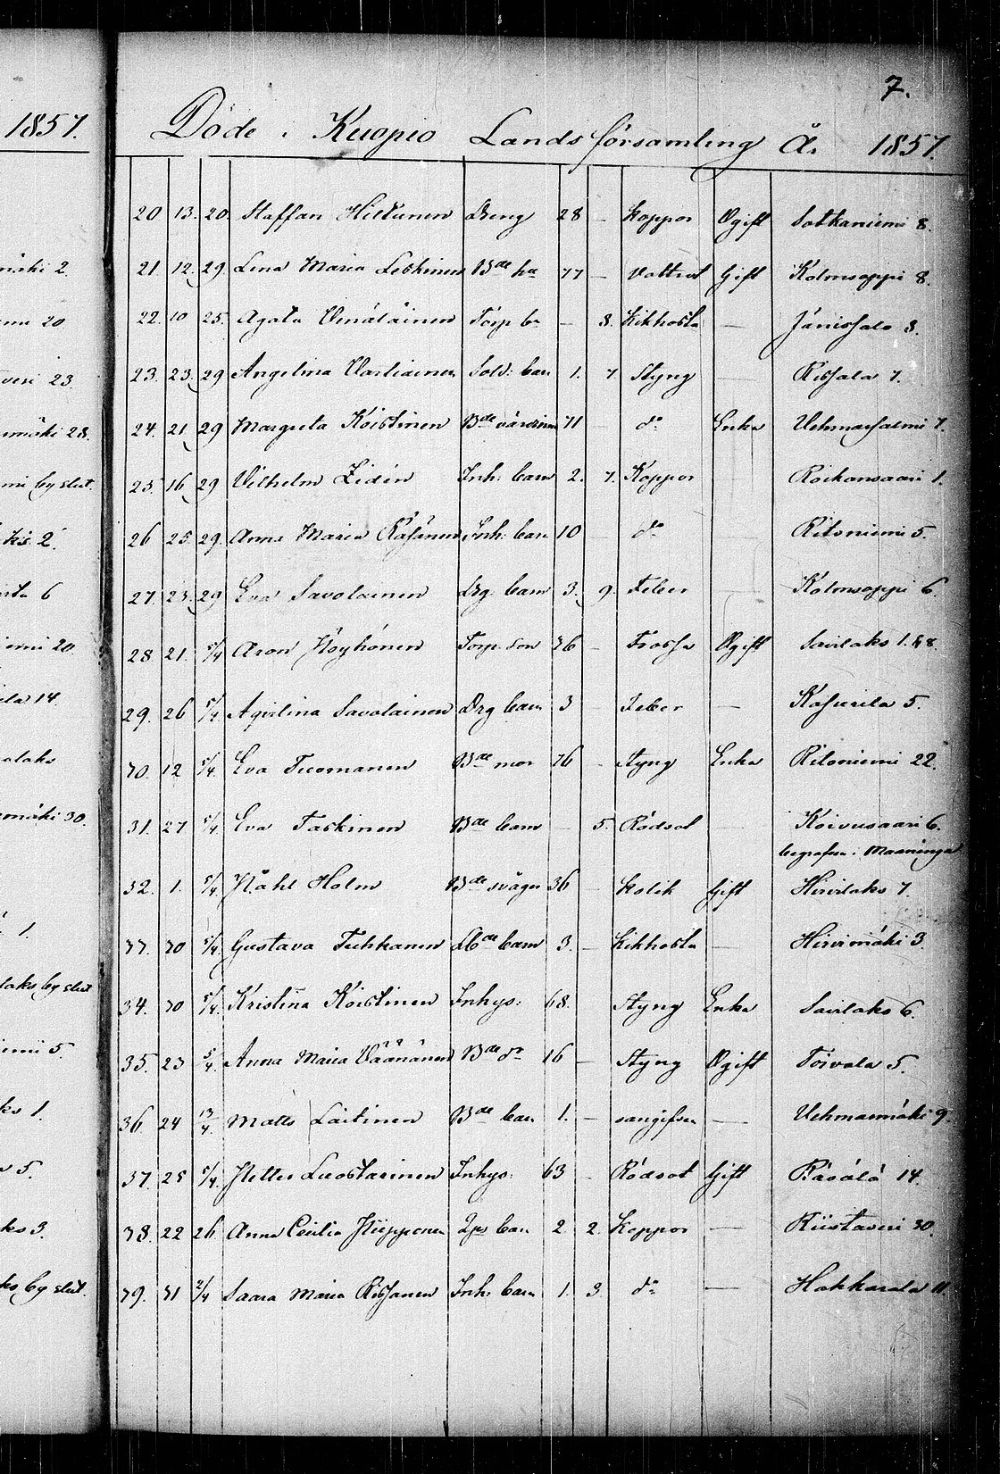 1857.
7.
Döde i Kuopio Landsförsamling År 1857.
20 13. 20. Staffan Hiltunen Dreng 28 - Koppor Ogift Sotkaniemi 8.
21. 12. 29. Lena Maria Leskinen Bde 77 - Vattsot Gift Kolmsoppi 8.
22. 10 25. Agata Venäläinen Torp b. - 8. Kikhosta - Jänissalo 3.
23. 23. 29 Angelina Vartiainen Sold: barn 1. 7. Styng - Rissala 7.
24. 21. 29 Margreta Koistinen Bde värdinna 71 do Enka Vehmassalmi 7.
25. 16. 29 Vilhelm Lidén Inh: barn 2. 7. Koppor Roikansaari 1.
26 25 29. Anna Maria Räsänen Inh: barn 10 - do Ritoniemi 5.
27. 23. 29 Eva Savolainen Drg barn 3. 9. Feber - Kolmsoppi 6.
28 21. 1/4 Aron Höyhönen Torp. son 36 - Frossa Ogift Savilaks 1.
29. 26 1/4 Agvilina Savolainen Drg barn 3 - Feber - Kasurila 5.
30. 12 1/4 Eva Tuomanen Bde mor 76 - Styng Enka Ritoniemi 22.
31. 27 1/4 Eva Taskinen Bde barn - 5. Rödsot - Koivusaari 6.
begrafven i Maaninga
32. 1. 1/4 Påhl Holm Bde svåger 36 - Kolik Gift Hirvilaks 7.
33. 30 1/4 Gustava Tuhkanen barn 3. - Kikhosta - Hirvimäki 3.
34. 30 1/4 Kristina Koistinen Inhys: 68. Styng Enka Savilaks 6.
35. 23 5/4 Anna Maria Väänänen Bde dr 16 - Styng Ogift Toivala 5.
36. 24 13/4. Matts Laitinen Bde barn 1. - - Vehmasmäki 9.
37. 25 1/4. Petter Luostarinen Inhys: 63 - Rödsot Gift Räsälä 14.
38. 22 26 Anna Cecilia Piipponen barn 2. 2. Koppor - Riistavesi 30.
39. 31 2/4 Saara Maria Rissanen Inh: barn 1. 3. do - Hakkarala 11.